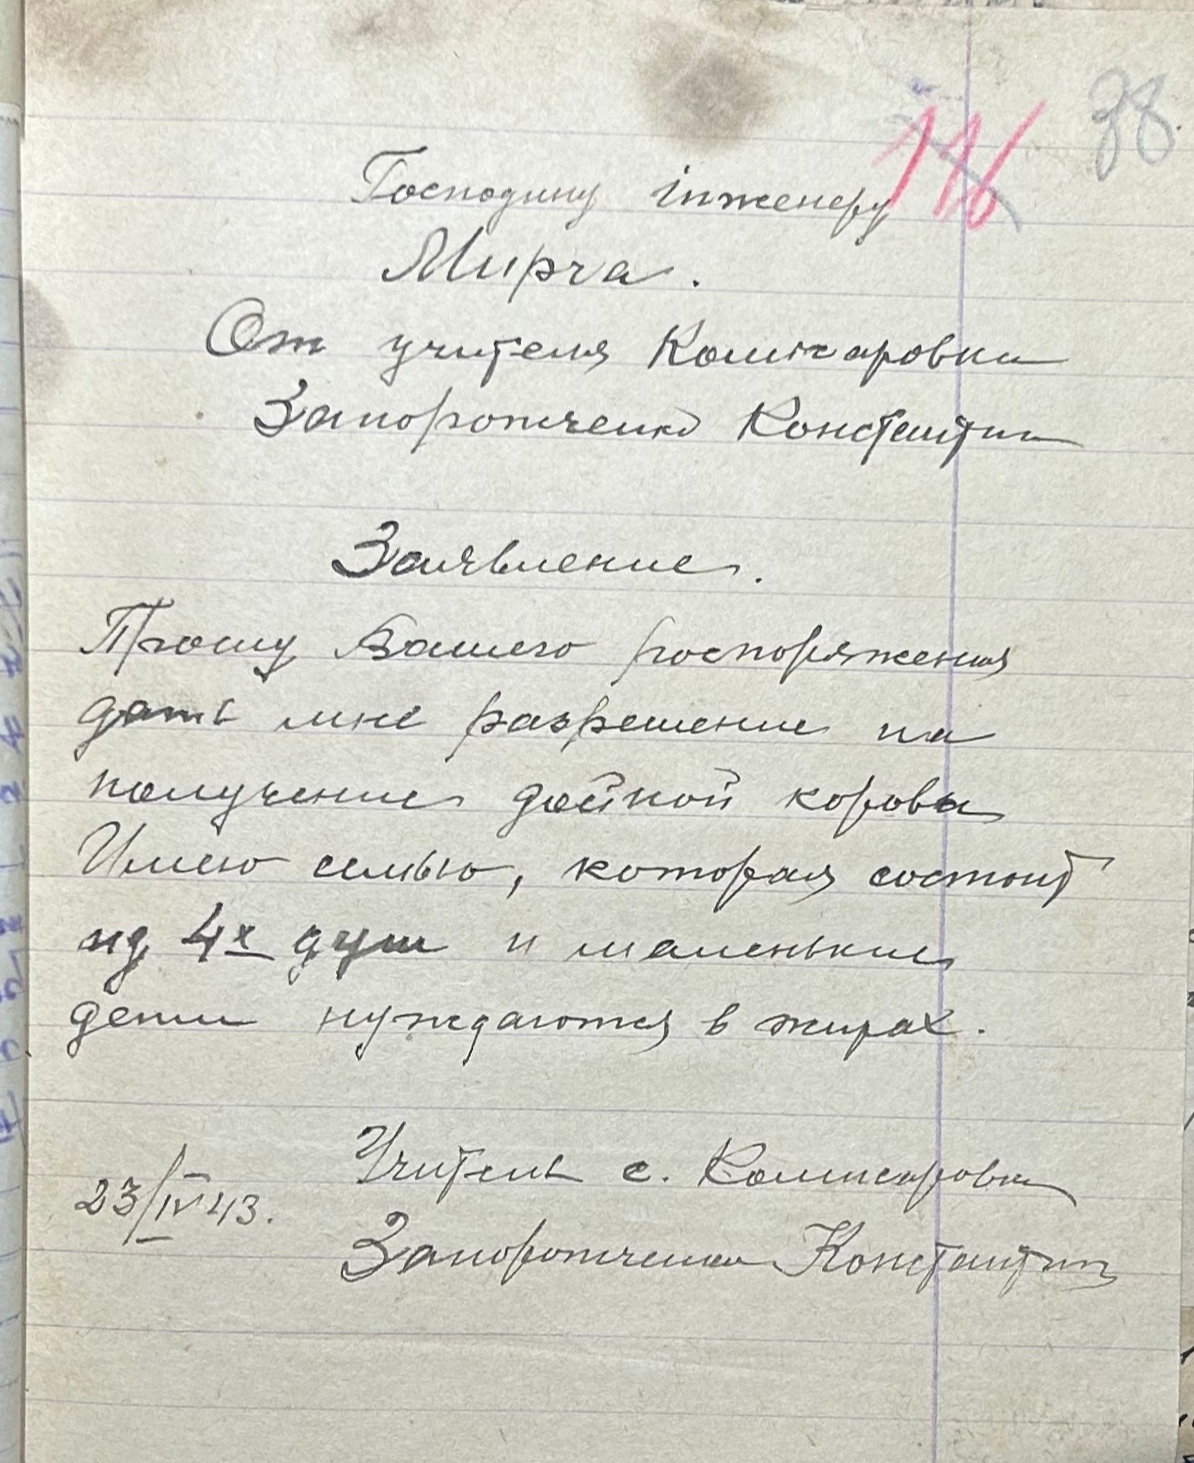 38
116
Господину інженеру
Мирча.
От учителя Комисаровки
Запоротченко Константин
Заявление.
Прошу Вашего роспоряжения
дать мне разрешение на
получение дойной коровы
Имею семью, которая состоит
из 4х душ и маленькие
дети нуждаются в жирах.
Учитель с. Комисаровки
23/IV 43.
Запоротченко Константин